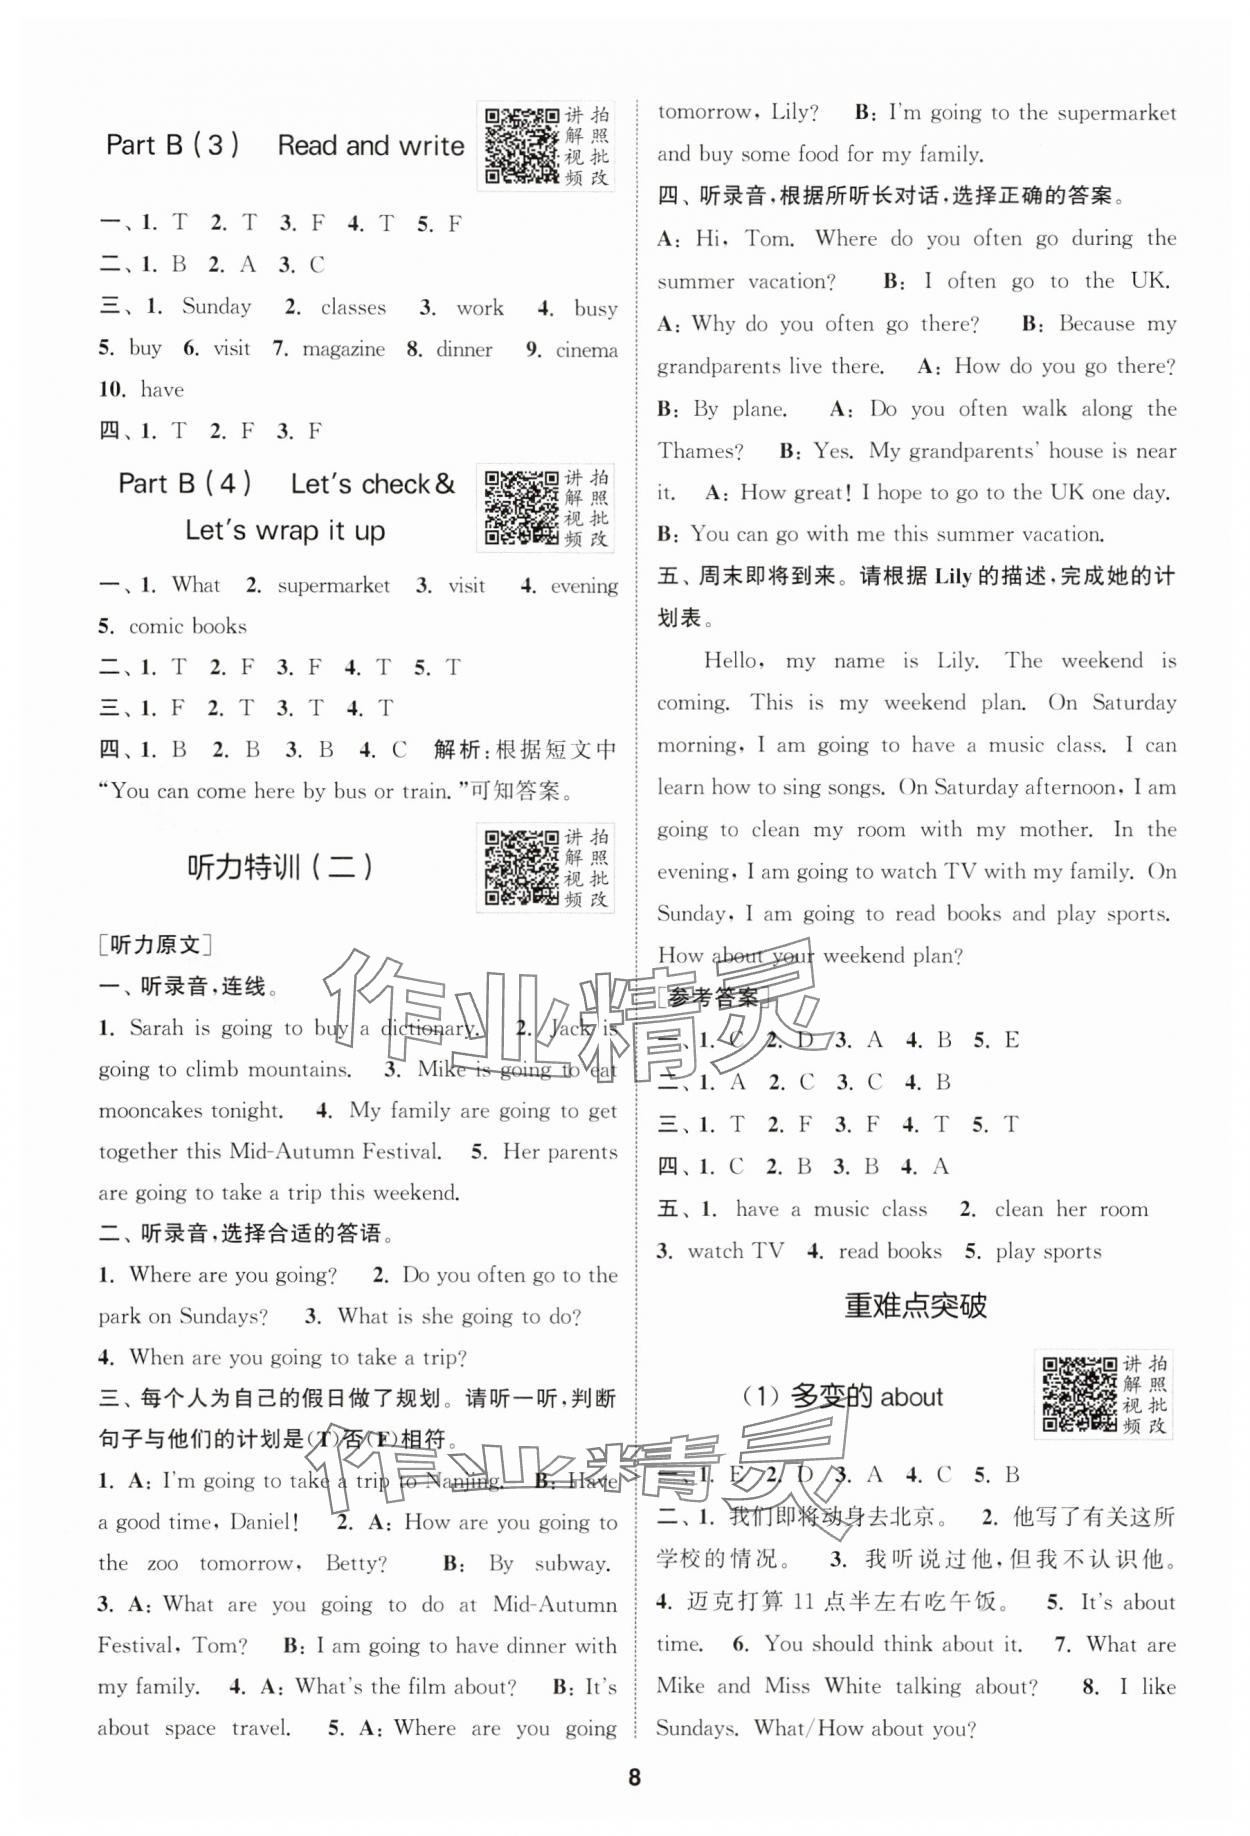 Part B(3) Read and write
讲拍
解照
视批
频改
一、1. T 2. T 3. F 4. T 5. F
二、1. B 2. A 3. C
三、1. Sunday 2. classes 3. work 4. busy
5. buy 6. visit 7. magazine 8. dinner 9. cinema
10. have
四、1. T 2. F 3. F
Part B(4) Let's check &
Let's wrap it up
讲拍
解照
视批
频改
一、1. What 2. supermarket 3. visit 4. evening
5. comic books
二、1. T 2. F 3. F 4. T 5. T
三、1. F 2. T 3. T 4. T
四、1. B 2. B 3. B 4. C 解析:根据短文中
“You can come here by bus or train.”可知答案。
听力特训(二)
讲拍
解照
视批
频改
[听力原文]
一、听录音,连线。
1. Sarah is going to buy a dictionary. 2. Jack is
going to climb mountains. 3. Mike is going to eat
mooncakes tonight. 4. My family are going to get
together this Mid-Autumn Festival. 5. Her parents
are going to take a trip this weekend.
二、听录音,选择合适的答语。
1. Where are you going? 2. Do you often go to the
park on Sundays? 3. What is she going to do?
4. When are you going to take a trip?
三、每个人为自己的假日做了规划。请听一听,判断
句子与他们的计划是(T)否(F)相符。
1. A: I'm going to take a trip to Nanjing. B: Have
a good time, Daniel! 2. A: How are you going to
the zoo tomorrow, Betty? B: By subway.
3. A: What are you going to do at Mid-Autumn
Festival, Tom? B: I am going to have dinner with
my family. 4. A: What's the film about? B: It's
about space travel. 5. A: Where are you going
tomorrow, Lily? B: I'm going to the supermarket
and buy some food for my family.
四、听录音,根据所听长对话,选择正确的答案。
A: Hi, Tom. Where do you often go during the
summer vacation? B: I often go to the UK.
A: Why do you often go there? B: Because my
grandparents live there. A: How do you go there?
B: By plane. A: Do you often walk along the
Thames? B: Yes. My grandparents' house is near
it. A: How great! I hope to go to the UK one day.
B: You can go with me this summer vacation.
五、周末即将到来。请根据 Lily 的描述,完成她的计
划表。
Hello, my name is Lily. The weekend is
coming. This is my weekend plan. On Saturday
morning, I am going to have a music class. I can
learn how to sing songs. On Saturday afternoon, I am
going to clean my room with my mother. In the
evening, I am going to watch TV with my family. On
Sunday, I am going to read books and play sports.
How about your weekend plan?
[参考答案]
一、1. C 2. D 3. A 4. B 5. E
二、1. A 2. C 3. C 4. B
三、1. T 2. F 3. F 4. T 5. T
四、1. C 2. B 3. B 4. A
五、1. have a music class 2. clean her room
3. watch TV 4. read books 5. play sports
重难点突破
(1) 多变的 about
讲拍
解照
视批
频改
一、1. E 2. D 3. A 4. C 5. B
二、1. 我们即将动身去北京。 2. 他写了有关这所
学校的情况。 3. 我听说过他,但我不认识他。
4. 迈克打算 11 点半左右吃午饭。 5. It's about
time. 6. You should think about it. 7. What are
Mike and Miss White talking about? 8. I like
Sundays. What/How about you?
8
作业精灵
作业精灵